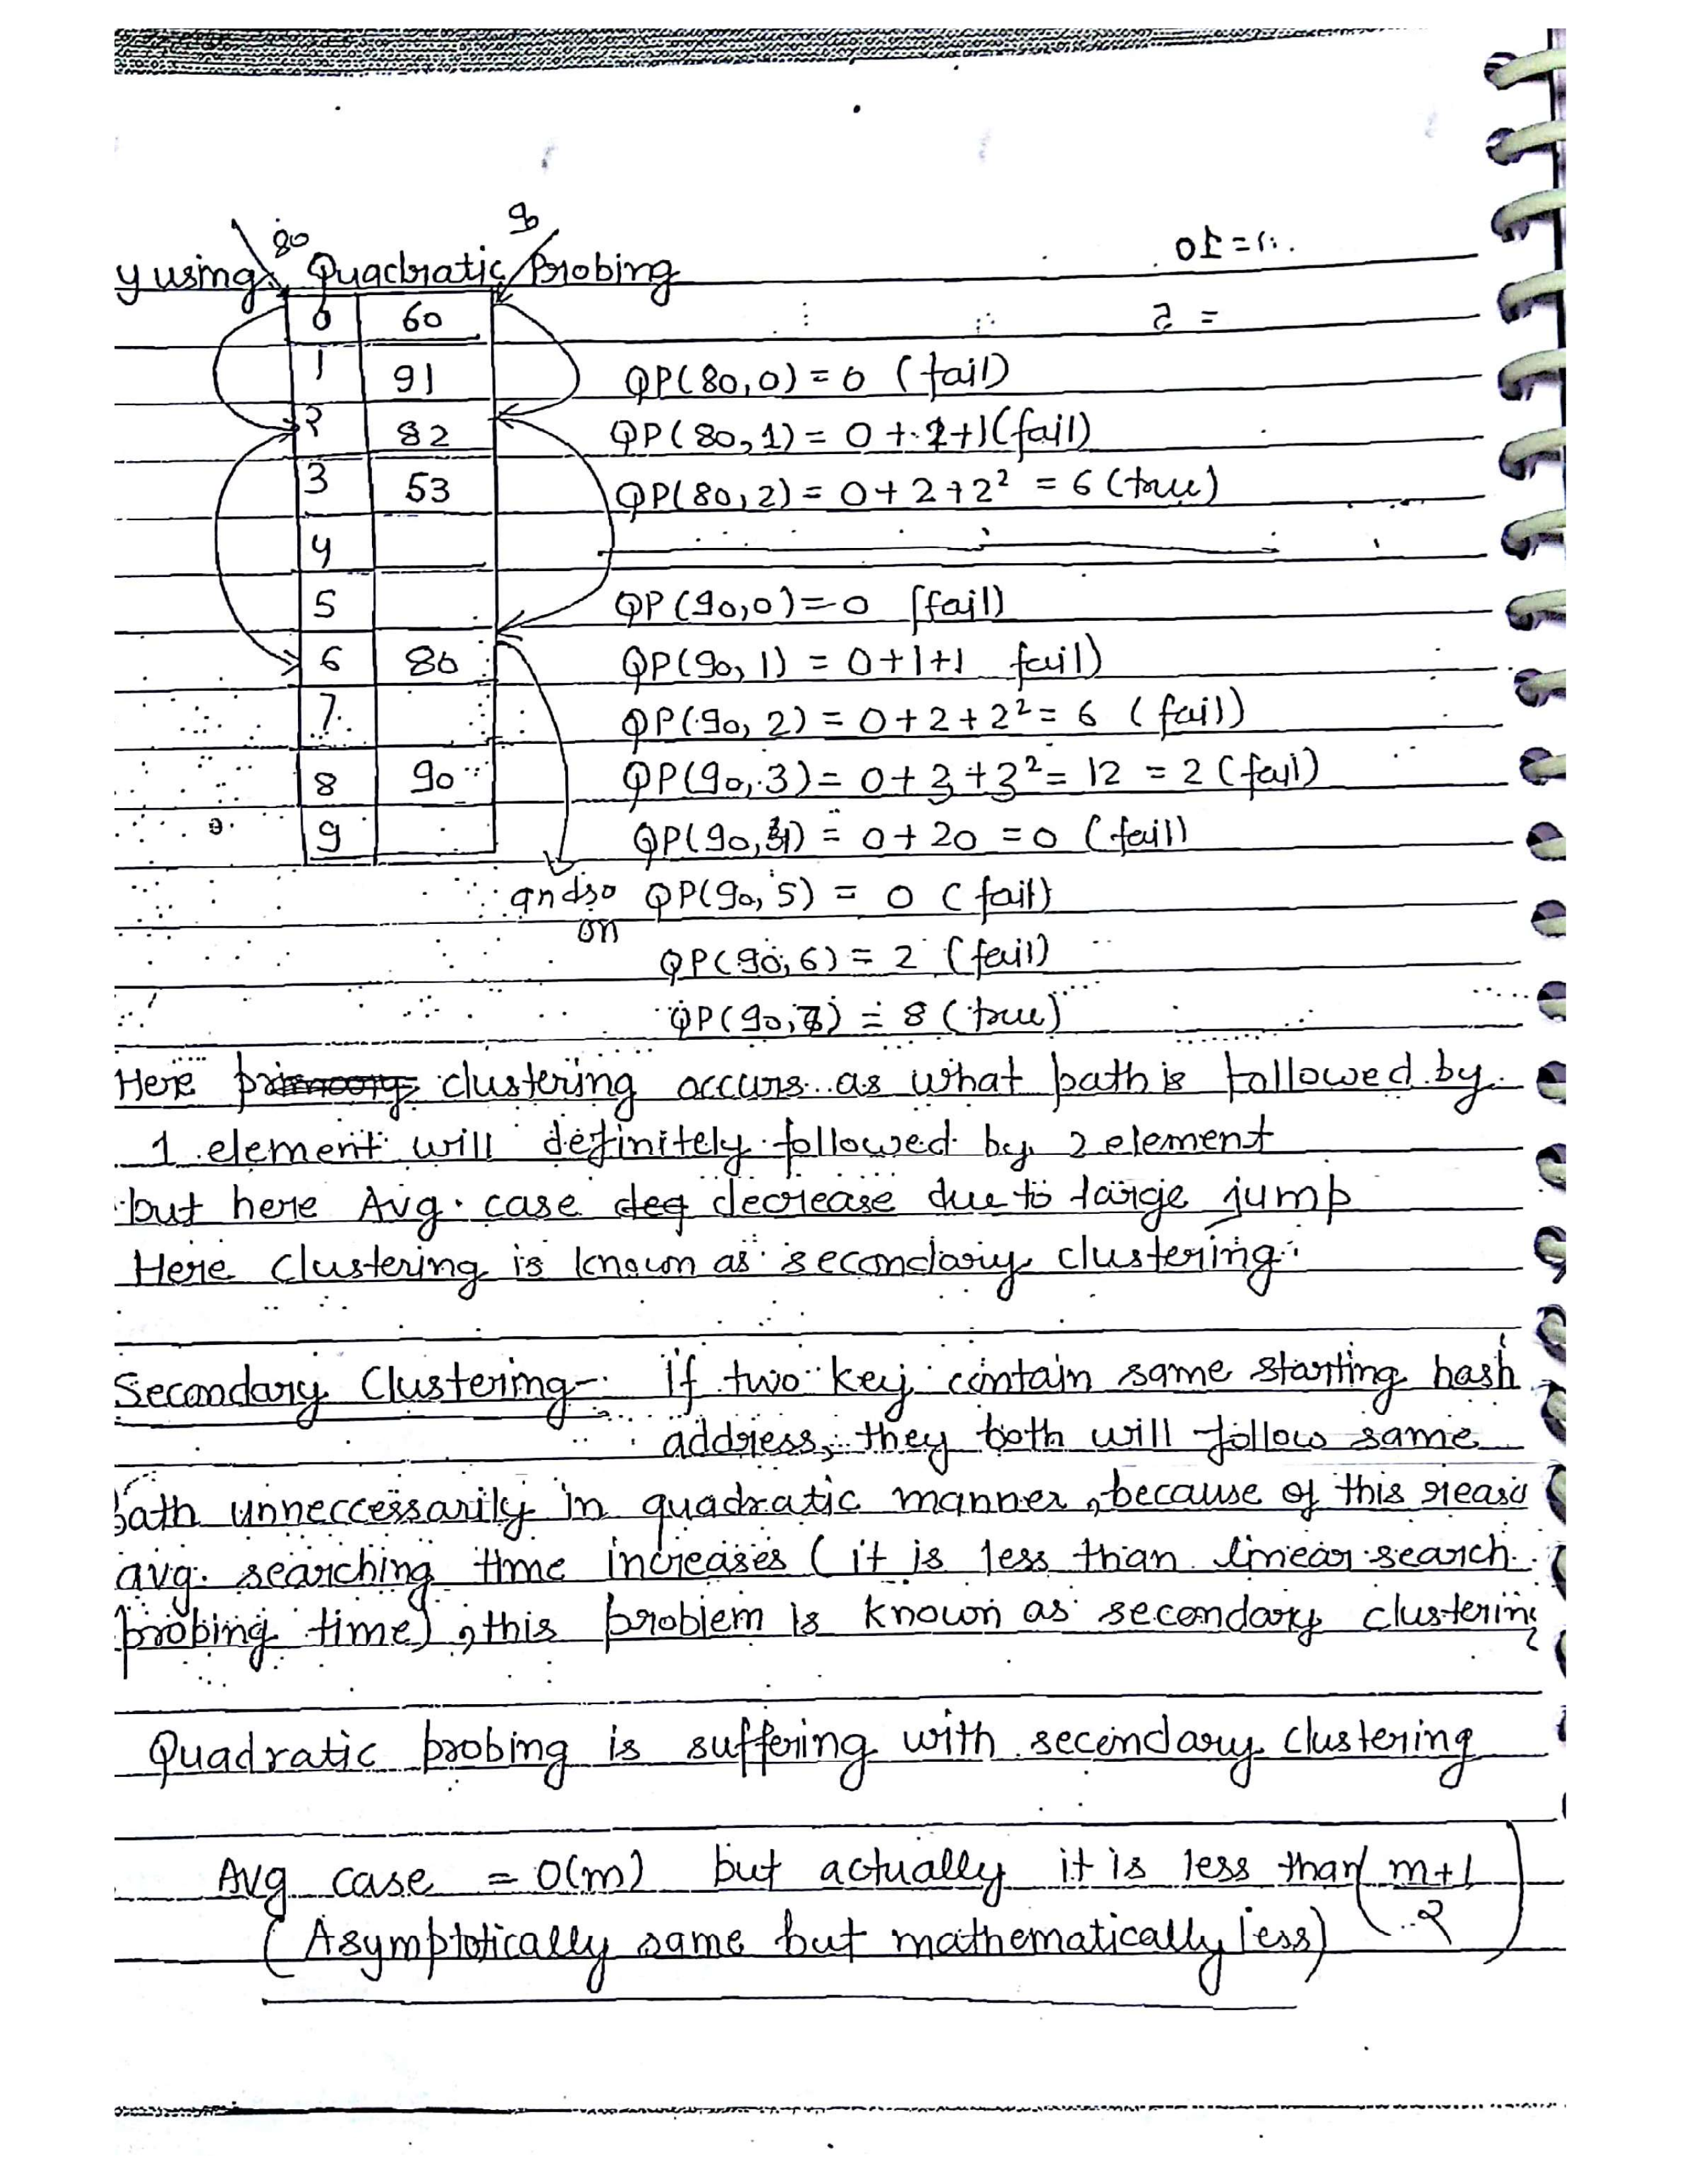 80
90
y using Quadratic Probing
0 60
1 91
2 82
3 53
4
5
6 80
7
8 90
9
QP(80,0) = 0 (fail)
QP(80,1) = 0+1+1 (fail)
QP(80,2) = 0+2+2² = 6 (true)
QP(90,0) = 0 (fail)
QP(90,1) = 0+1+1 fail)
QP(90,2) = 0+2+2² = 6 (fail)
QP(90,3) = 0+3+3² = 12 = 2 (fail)
QP(90,4) = 0+20 = 0 (fail)
and so on QP(90,5) = 0 (fail)
QP(90,6) = 2 (fail)
QP(90,7) = 8 (true)
Here clustering occurs as what path is followed by
1 element will definitely followed by 2 element
but here Avg. case decrease due to large jump
Here clustering is known as secondary clustering.
Secondary Clustering- If two key contain same starting hash
address, they both will follow same
path unneccessarily in quadratic manner, because of this reaso
avg. searching time increases (it is less than linear search
probing time), this problem is known as secondary clustering
Quadratic probing is suffering with secondary clustering
Avg case = O(m) but actually it is less than (m+1
2)
(Asymptotically same but mathematically less)